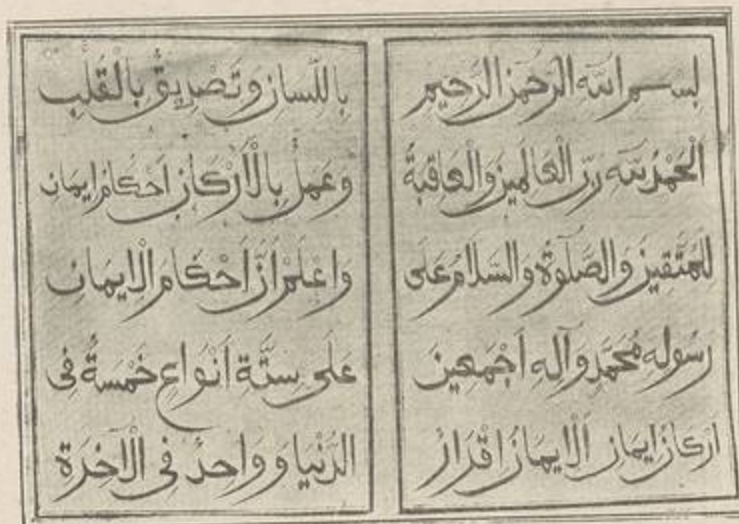 بسم الله الرحمن الرحيم
الْحَمْدُ لله رَبِّ الْعَالَمِينَ وَالْعَاقِبَةُ
لِلْمُتَّقِينَ وَالصَّلٰوةُ وَالسَّلَامُ عَلَى
رَسُولِهِ مُحَمَّدٍ وَآلِهِ اَجْمَعِينَ
اَرْكَانِ اِيمَان اَلْاِيمَانُ اِقْرَارٌ
بِاللِّسَانِ وَتَصْدِيقٌ بِالْقَلْبِ
وَعَمَلٌ بِالْاَرْكَانِ اَحْكَام اِيمَان
وَاعْلَمْ اَنَّ اَحْكَامَ الْاِيمَانِ
عَلَى سِتَّةِ اَنْوَاعٍ خَمْسَةٌ فِى
الدُّنْيَا وَ وَاحِدٌ فِى الْآخِرَةِ